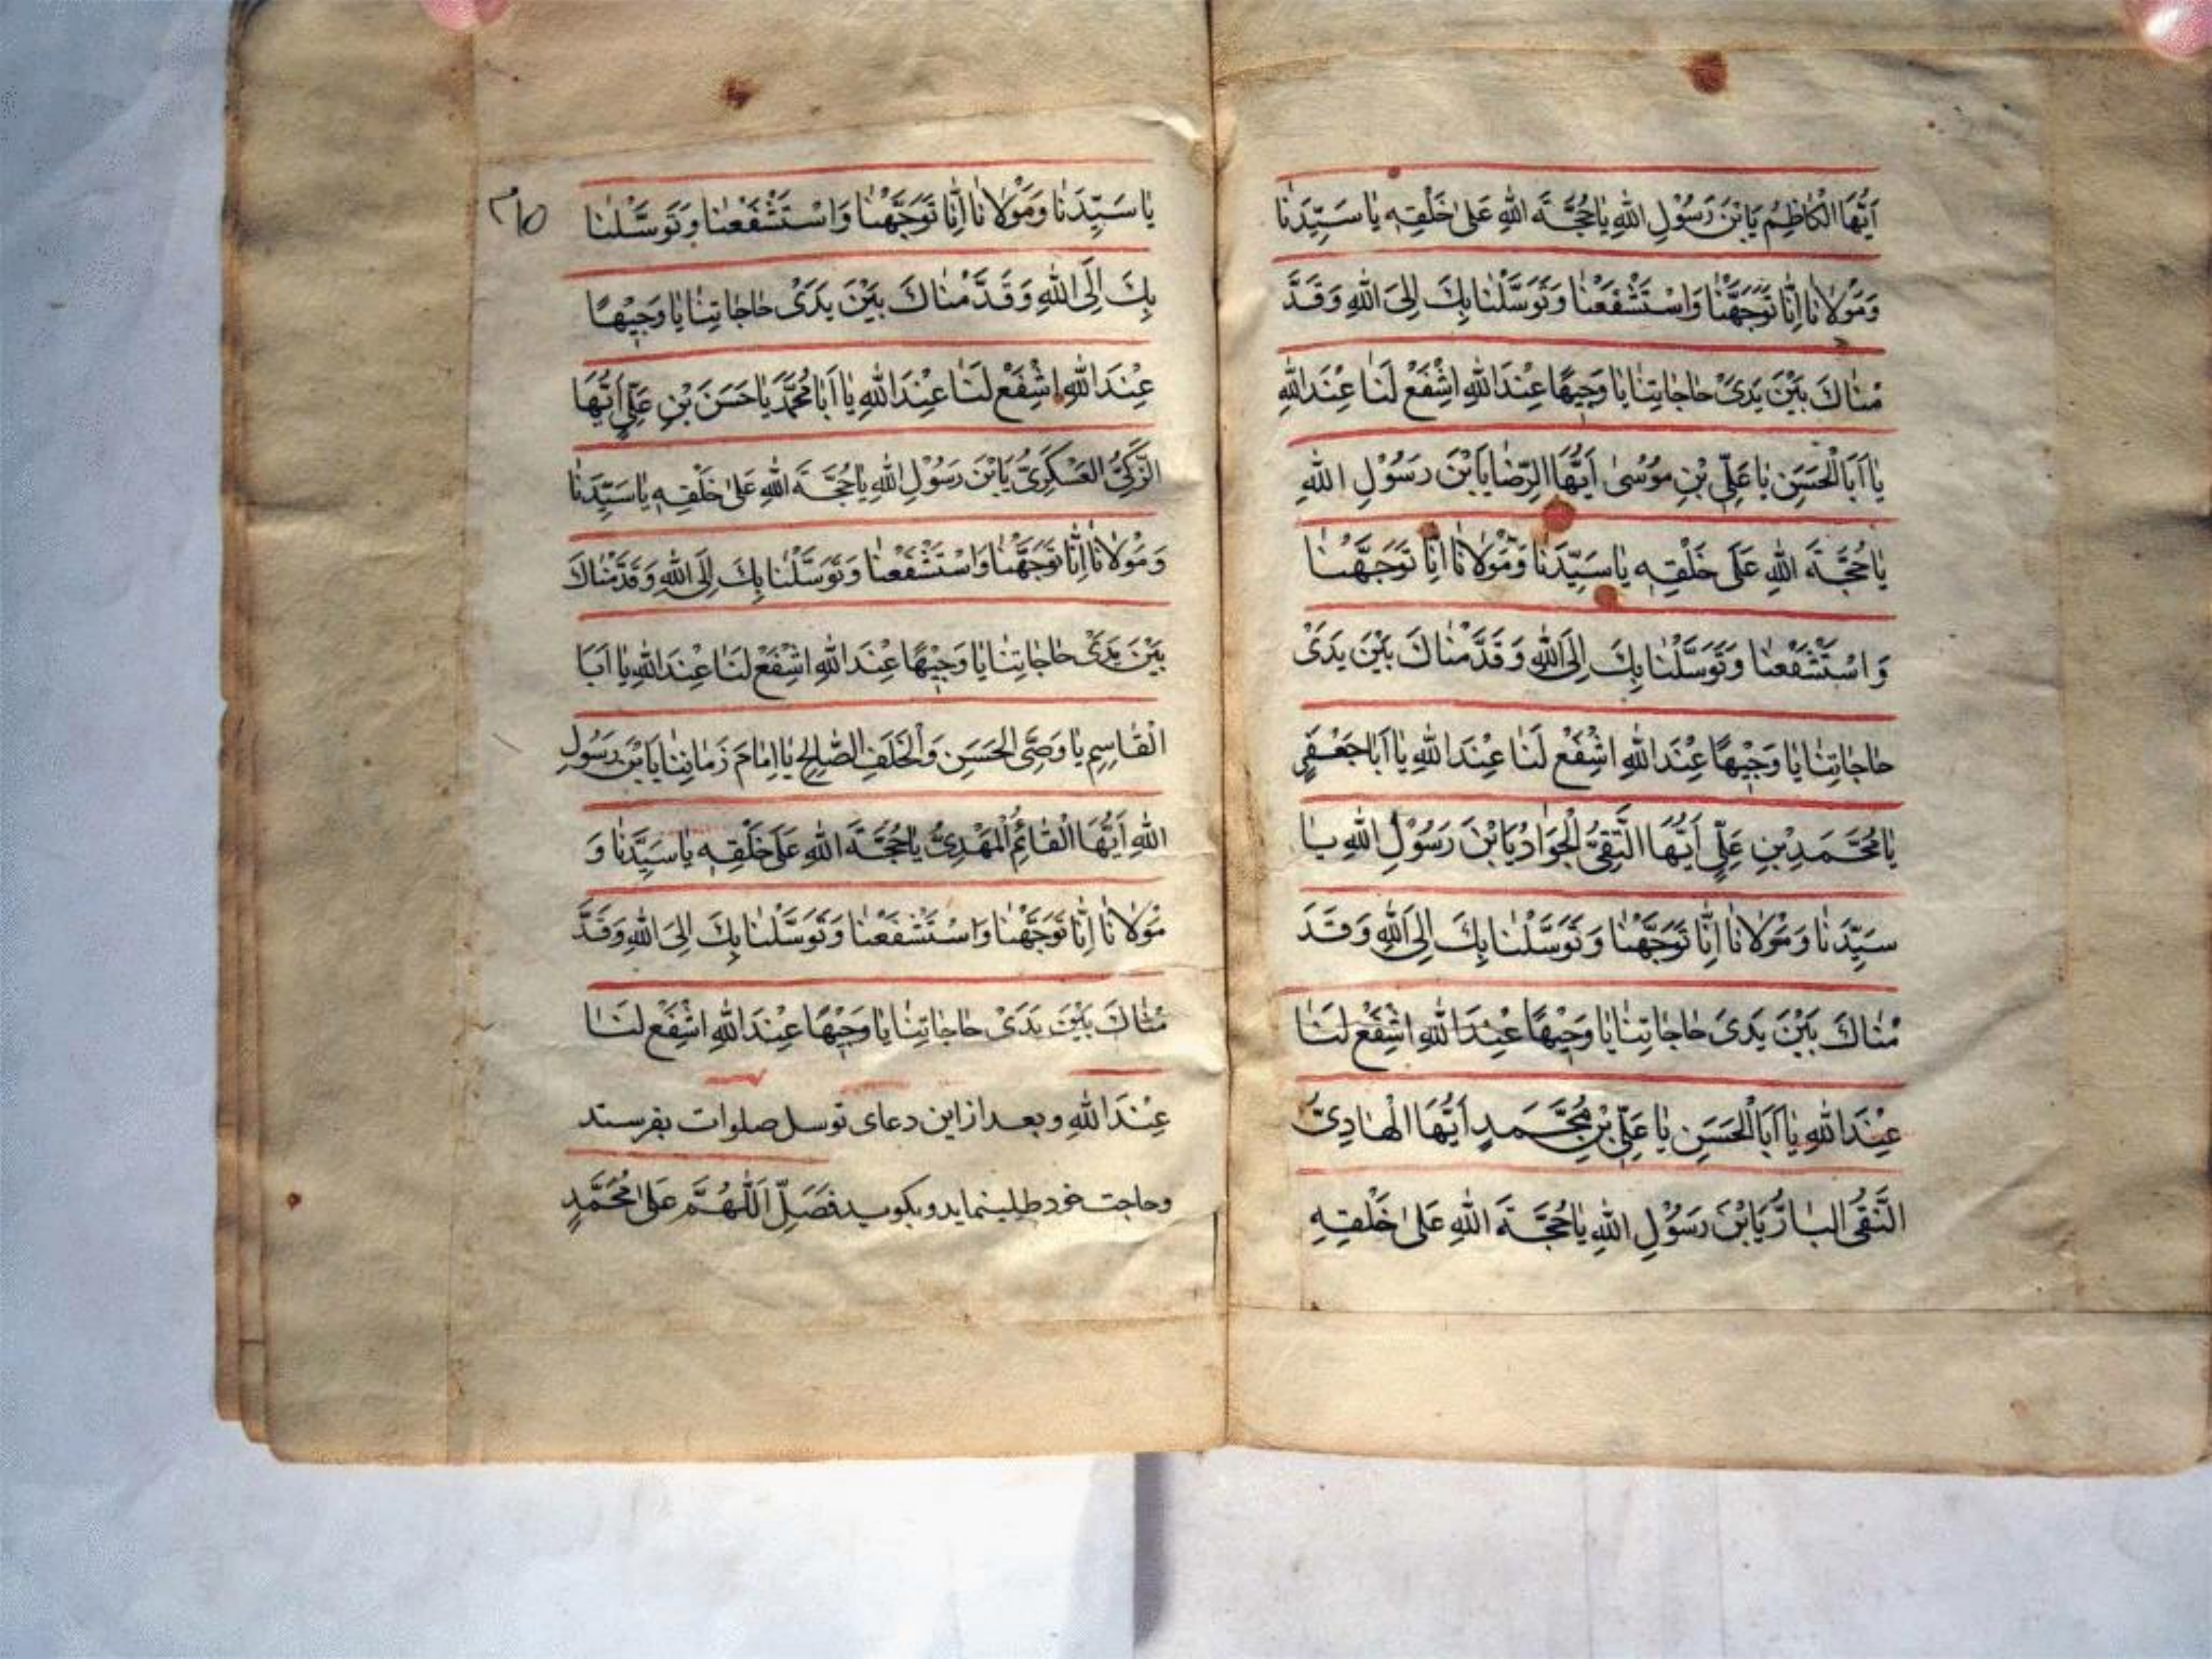 اَيُّهَا الْكاظِمُ يَابْنَ رَسُوْلِ اللهِ يا حُجَّةَ اللهِ عَلىٰ خَلْقِهِ يا سَيِّدَنا
وَمَوْلانا اِنّا تَوَجَّهْنا وَاسْتَشْفَعْنا وَتَوَسَّلْنا بِكَ اِلَى اللهِ وَقَدَّ
مْناكَ بَيْنَ يَدَىْ حاجاتِنا يا وَجِيْهًا عِنْدَ اللهِ اشْفَعْ لَنا عِنْدَ اللهِ
يا اَبَا الْحَسَنِ يا عَلِيِّ بْنِ مُوْسىٰ اَيُّهَا الرِّضا يَابْنَ رَسُوْلِ اللهِ
يا حُجَّةَ اللهِ عَلَى خَلْقِهِ يا سَيِّدَنا وَمَوْلانا اِنّا تَوَجَّهْنا
وَاسْتَشْفَعْنا وَتَوَسَّلْنا بِكَ اِلَى اللهِ وَقَدَّمْناكَ بَيْنَ يَدَىْ
حاجاتِنا يا وَجِيْهًا عِنْدَ اللهِ اشْفَعْ لَنا عِنْدَ اللهِ يا اَبا جَعْفَرٍ
يا مُحَمَّدِ بْنِ عَلِيٍّ اَيُّهَا التَّقِىُّ الْجَوادُ يَابْنَ رَسُوْلِ اللهِ يا
سَيِّدَنا وَمَوْلانا اِنّا تَوَجَّهْنا وَتَوَسَّلْنا بِكَ اِلَى اللهِ وَقَدَ
مْناكَ بَيْنَ يَدَىَ حاجاتِنا يا وَجِيْهًا عِنْدَ اللهِ اشْفَعْ لَنا
عِنْدَ اللهِ يا اَبَا الْحَسَنِ يا عَلِيِّ بْنِ مُحَمَّدٍ اَيُّهَا الْهادِىُّ
النَّقِىُّ البارُّ يَابْنَ رَسُوْلِ اللهِ يا حُجَّةَ اللهِ عَلىٰ خَلْقِهِ
يا سَيِّدَنا وَمَوْلانا اِنّا تَوَجَّهْنا وَاسْتَشْفَعْنا وَتَوَسَّلْنا
بِكَ اِلَى اللهِ وَقَدَّمْناكَ بَيْنَ يَدَىْ حاجاتِنا يا وَجِيْهًا
عِنْدَ اللهِ اشْفَعْ لَنا عِنْدَ اللهِ يا اَبا مُحَمَّدٍ يا حَسَنَ بْنِ عَلِيٍّ اَيُّهَا
الزَّكِىُّ العَسْكَرِىُّ يَابْنَ رَسُوْلِ اللهِ يا حُجَّةَ اللهِ عَلىٰ خَلْقِهِ يا سَيِّدَنا
وَمَوْلانا اِنّا تَوَجَّهْنا وَاسْتَشْفَعْنا وَتَوَسَّلْنا بِكَ اِلَى اللهِ وَقَدَّمْناكَ
بَيْنَ يَدَىْ حاجاتِنا يا وَجِيْهًا عِنْدَ اللهِ اشْفَعْ لَنا عِنْدَ اللهِ يا اَبَا
الْقاسِمِ يا وَصِىَّ الحَسَنِ وَالْخَلَفِ الصّالِحِ يا اِمامَ زَمانِنا يَابْنَ رَسُوْلِ
اللهِ اَيُّهَا الْقائِمُ الْمَهْدِىُّ يا حُجَّةَ اللهِ عَلَى خَلْقِهِ يا سَيِّدَنا وَ
مَوْلانا اِنّا تَوَجَّهْنا وَاسْتَشْفَعْنا وَتَوَسَّلْنا بِكَ اِلَى اللهِ وَقَدَّ
مْناكَ بَيْنَ يَدَىْ حاجاتِنا يا وَجِيْهًا عِنْدَ اللهِ اشْفَعْ لَنا
عِنْدَ اللهِ وبعد از این دعای توسل صلوات بفرستد
وحاجت خود طلب نماید و بکوید فَصَلِّ اَللّٰهُمَّ عَلىٰ مُحَمَّدٍ